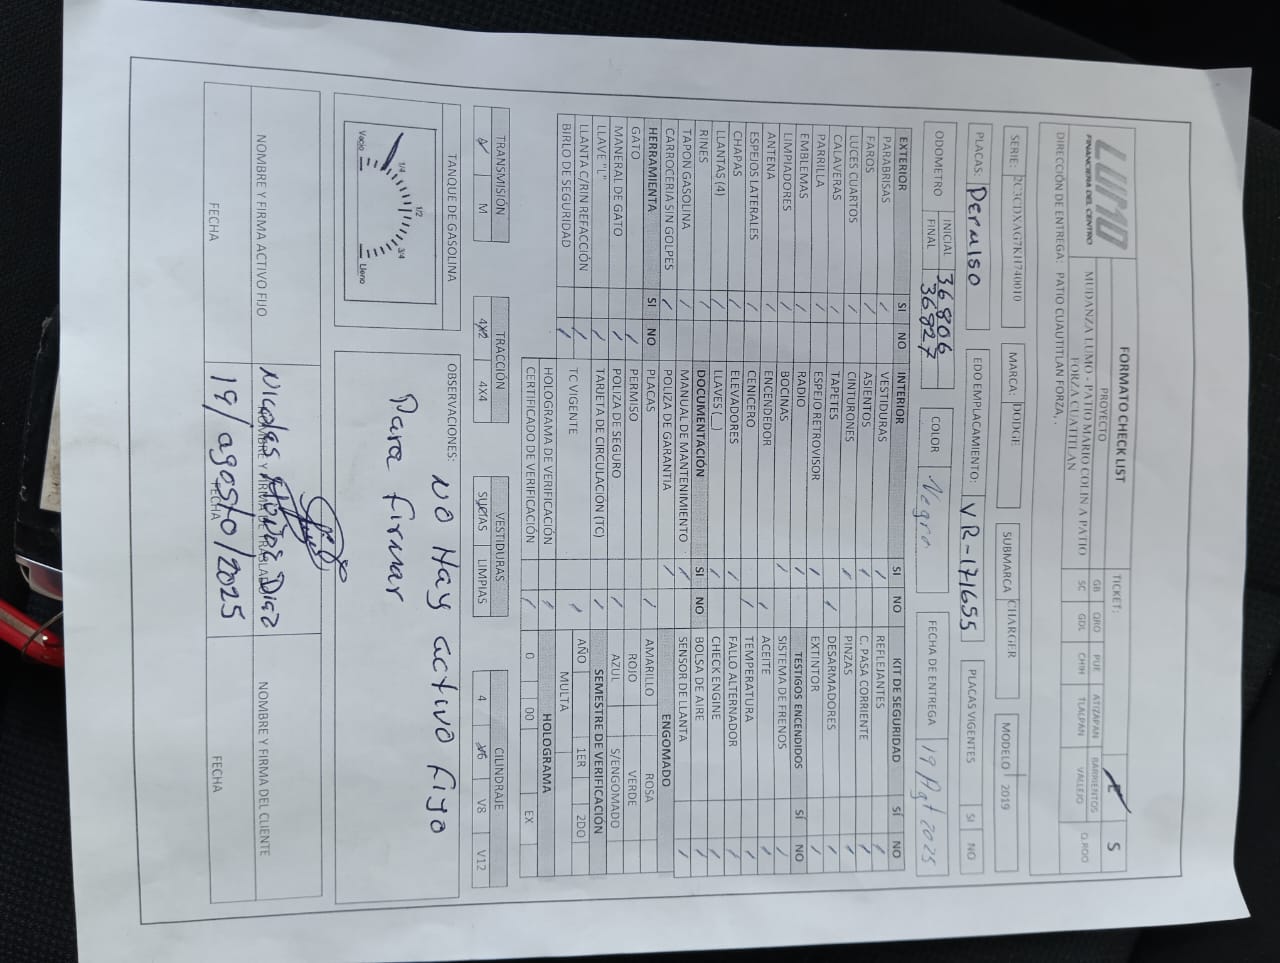 LUMO
FINANCIERA DEL CENTRO
FORMATO CHECK LIST
PROYECTO
MUDANZA LUMO - PATIO MARIO COLIN A PATIO
FORZA CUATITLAN
TICKET:
E S
GB QRO PUE ATIZAPAN BARRIENTOS Q.ROO
SC GDL CHIH TLALPAN VALLEJO
DIRECCIÓN DE ENTREGA: PATIO CUAUTITLAN FORZA,.
SERIE: 2C3CDXAG7KH740010
MARCA: DODGE
SUBMARCA CHARGER
MODELO 2019
PLACAS: Permiso
EDO EMPLACAMIENTO: VR-171655
PLACAS VIGENTES SI NO
ODOMETRO
INICIAL 36806
FINAL 36827
COLOR Negro
FECHA DE ENTREGA 19/Agt 2025
EXTERIOR SI NO
PARABRISAS
FAROS
LUCES CUARTOS
CALAVERAS
PARRILLA
EMBLEMAS
LIMPIADORES
ANTENA
ESPEJOS LATERALES
CHAPAS
LLANTAS (4)
RINES
TAPON GASOLINA
CARROCERIA SIN GOLPES
HERRAMIENTA SI NO
GATO
MANERAL DE GATO
LLAVE "L"
LLANTA C/RIN REFACCIÓN
BIRLO DE SEGURIDAD
INTERIOR SI NO
VESTIDURAS
ASIENTOS
CINTURONES
TAPETES
ESPEJO RETROVISOR
RADIO
BOCINAS
ENCENDEDOR
CENICERO
ELEVADORES
LLAVES (__)
DOCUMENTACIÓN SI NO
MANUAL DE MANTENIMIENTO
POLIZA DE GARANTIA
PLACAS
PERMISO
POLIZA DE SEGURO
TARJETA DE CIRCULACIÓN (TC)
TC VIGENTE
HOLOGRAMA DE VERIFICACIÓN
CERTIFICADO DE VERIFICACIÓN
KIT DE SEGURIDAD SÍ NO
REFLEJANTES
C. PASA CORRIENTE
PINZAS
DESARMADORES
EXTINTOR
TESTIGOS ENCENDIDOS SÍ NO
SISTEMA DE FRENOS
ACEITE
TEMPERATURA
FALLO ALTERNADOR
CHECK ENGINE
BOLSA DE AIRE
SENSOR DE LLANTA
ENGOMADO
AMARILLO ROSA
ROJO VERDE
AZUL S/ENGOMADO
SEMESTRE DE VERIFICACIÓN
AÑO 1ER 2DO
MULTA
HOLOGRAMA
0 00 EX
TRANSMISIÓN
A M
TRACCIÓN
4X2 4X4
VESTIDURAS
SUCIAS LIMPIAS
CILINDRAJE
4 V6 V8 V12
TANQUE DE GASOLINA
Vacio 1/4 1/2 3/4 Lleno
OBSERVACIONES:
NO Hay activo Fijo
Para Firmar
NOMBRE Y FIRMA ACTIVO FIJO
FECHA
NOMBRE Y FIRMA DE TRASLADISTA
FECHA
19/agosto/2025
NOMBRE Y FIRMA DEL CLIENTE
FECHA